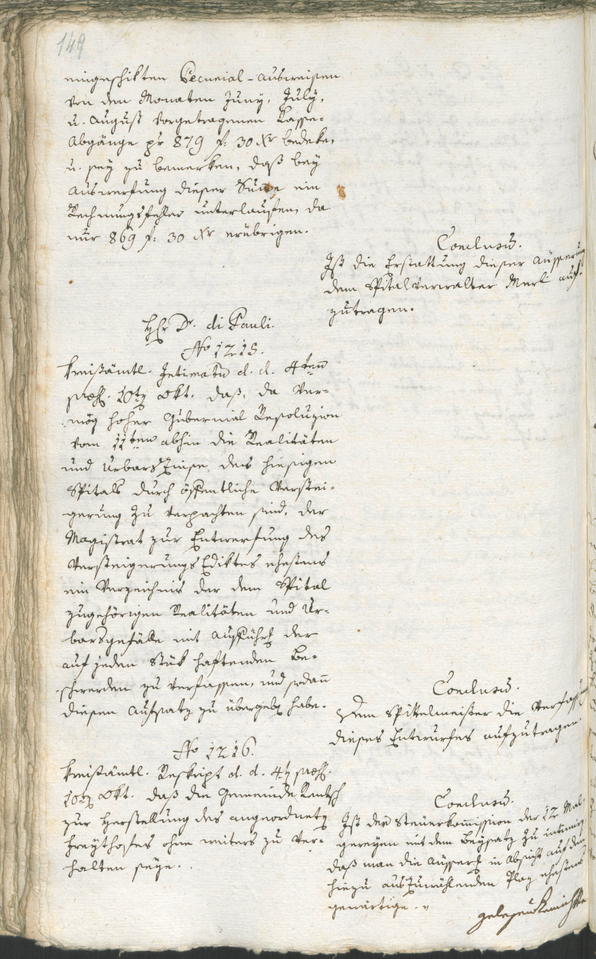 149
eingeschikten Pecunial-ausweisen
von den Monaten Juny, July,
u. August vorgetragenen Casse-
Abgänge pr 879 f: 30 Xr bedeke,
u. sey zu bemerken, daß bey
Auswerfung dieser Summe ein
Rechnungsfehler unterlaufen, da
nur 869 f: 30 Xr erübrigen.
Conclusum.
Ist die Erstattung dieser
dem Spitalverwalter Merl auf-
zutragen.
Hr Dr. di Pauli.
No 1215.
Kreißämtl. Intimatum d. d. 4ten
praes. 10ten Okt. daß, da ver-
mög hoher Gubernial Resoluzion
vom 11ten abhin die Realitäten
und Urbars Zinse, des hiesigen
Spitals durch öffentliche Verstei-
gerung zu verpachten sind, der
Magistrat zur Entwerfung des
Versteigerungs Ediktes ehestens
ein Verzeichnis der dem Spital
zugehörigen Realitäten und Ur-
barsgefälle mit der
auf jeden Stük haftenden Be-
schwerden zu verfassen, und sodann
diesen Aufsatz zu übergeben habe.
Conclusum.
Dem Spittelmeister die
dieses Entwurfes aufzutragen.
No 1216.
Kreißämtl. Reskript d. d. 4ten praes.
10ten Okt. daß die Gemeinde
zur Herstellung des angeordneten
Freythofes ohne weiters zu ver-
halten seye.
Conclusum.
Ist der Steuerkommission der
mit dem Beysatz zu
daß man die in Absicht auf den
hiezu auszuwählenden Plaz ehestens
gewärtige.